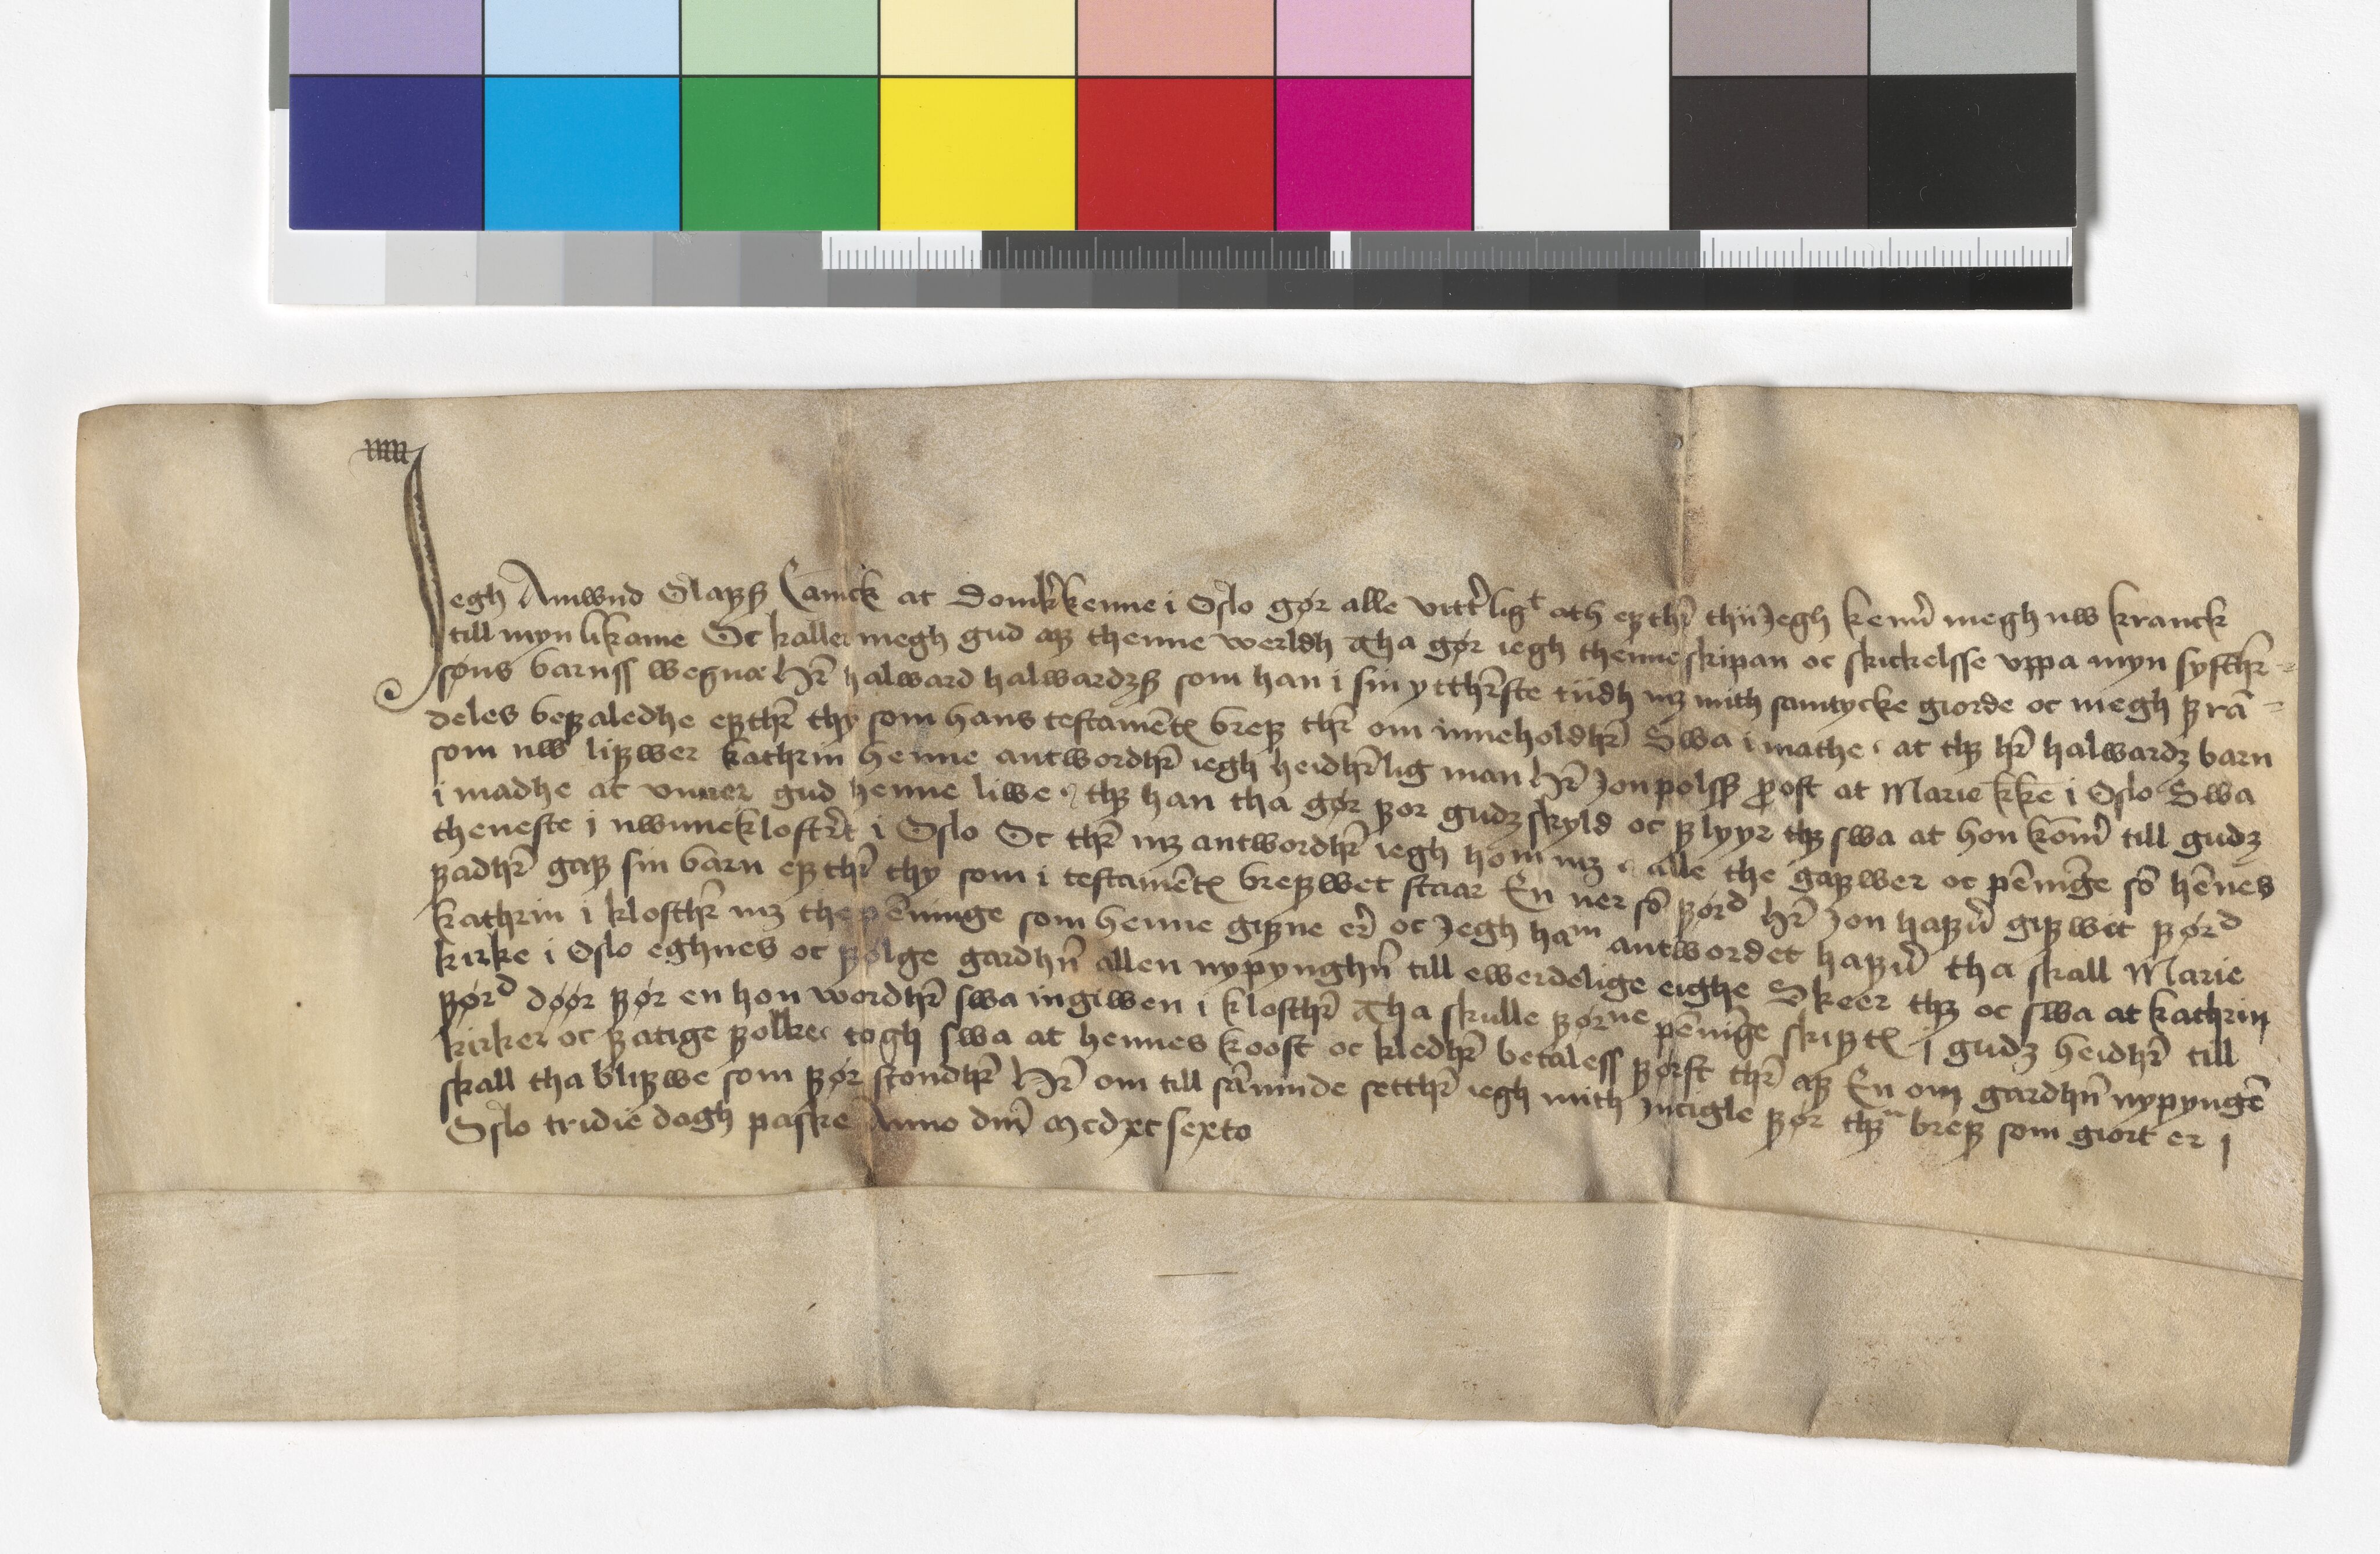 Jegh Amwnd Olafss Canick at domkrkenne i Oslo gør alle vitterligt ath efthr thii Jegh kenner megh nw kranck
till myn likame Oc kaller megh gud aff thenne werldh Tha gør iegh thenne skipan oc skickelsse vppa myn systhr=
søns barnss wegna Hr halward halwardzss som han i sin ytthrste tiidh mz mith samtycke giorde oc megh frā=
deles befaledhe efthr thy som hans testamētz breff thr om inneholdhr Swa i mathe at thz hr halwardz barn
som nw liffwer kathrin henne antwordhr iegh heidhrlig man Hr Jon polss prost at Marie kke i Oslo Swa
i madhe at vnner gud henne liwe thz han tha gør for gudz skyld oc flyyr thz swa at hon komr till gudz
theneste i nwnneklostret i Oslo Oc thr mz antwordhr iegh honm mz alle the gaffwer oc pēninge sō hēnes
fadhr gaff sin barn efthr thy som i testamētz breffwet staar En ner sō førd hr Jon haffr giffwit førd
kathrin i klosthr mz the pēninge som henne giffne er oc Jegh ham antwordet haffr tha skall Marie
kirke i Oslo eghnes oc følge gardhn allen nypynghn till ewerdelige eighe Skeer thz oc swa at kathrin
førd døør før en hon wordhr swa ingiwen i klosthr Tha skulle førne pēninge skifftz i gudz heidhr till
kirker oc fatige folke togh swa at hennes koost oc kledhr betaless først thr aff En om gardhn nypyngē
skall tha bliffwe som før stondhr Hr om till sāninde setthr iegh mith Jncigle før thn breff som giort er j
Oslo tridie dagh paske Anno dm Mcdxc sexto